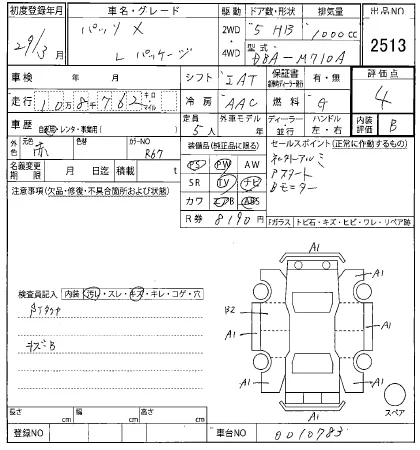 初度登録年月 車名・グレード 駆動 ドア数・形状 排気量 出品NO
29/3月 パッソ X 2WD・4WD 5 HB 1000cc 2513
L パッケージ 型式 DBA-M710A
車検 年 月 シフト IAT 保証書 有・無 評価点
走行 10万8千762キロ マイル 冷房 AAC 燃料 G 4
車歴 自家用・レンタ・事業用( ) 定員 5人 外車モデル 年 ディーラー・並行 ハンドル 左・右 内装評価 B
外色 元色 赤 色替 カラーNO R67 装備品(純正品に限る) セールスポイント(正常に作動するもの)
名義変更期限 月 日迄 積載 t PS PW AW
注意事項(欠品・修復・不具合箇所および状態) SR TV ナビ
カワ エアB ABS
R券 8190円 Fガラス トビ石・キズ・ヒビ・ワレ・リペア跡
Bモニター
検査員記入 内装 汚れ・スレ・キズ・キレ・コゲ・穴
A1
A1
A1
B2
A1
A1
A1
A1
A1
スペア
長さ cm 幅 cm 高さ cm
登録NO 車台NO 0010783